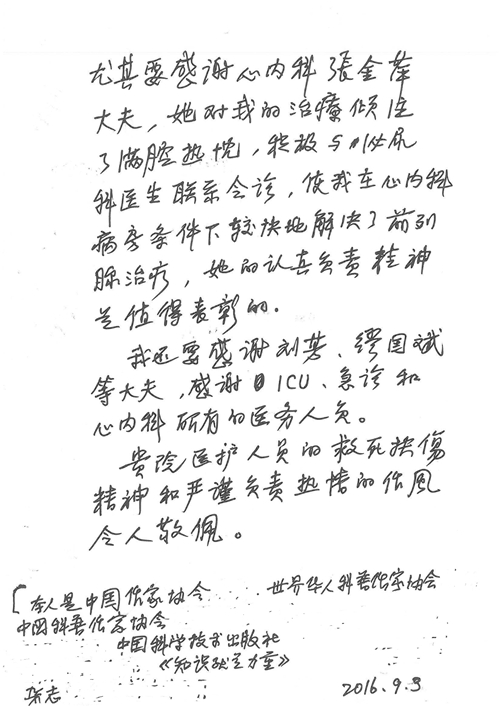 尤其要感谢心内科张金萍
大夫，她对我的治療倾注
了满腔热忱，积极与泌尿
科医生联系会诊，使我在心内科
病房条件下较快地解决了前列
腺治疗，她的认真负责精神
是值得表彰的。
我还要感谢刘芳、缪国斌
等大夫，感谢ICU、急诊和
心内科所有的医务人员。
贵院医护人员的救死扶傷
精神和严谨负责热情的作風
令人敬佩。
本人是中国作家协会 世界华人科普作家协会
中国科普作家协会
中国科学技术出版社
《知识就是力量》
杂志 2016.9.3